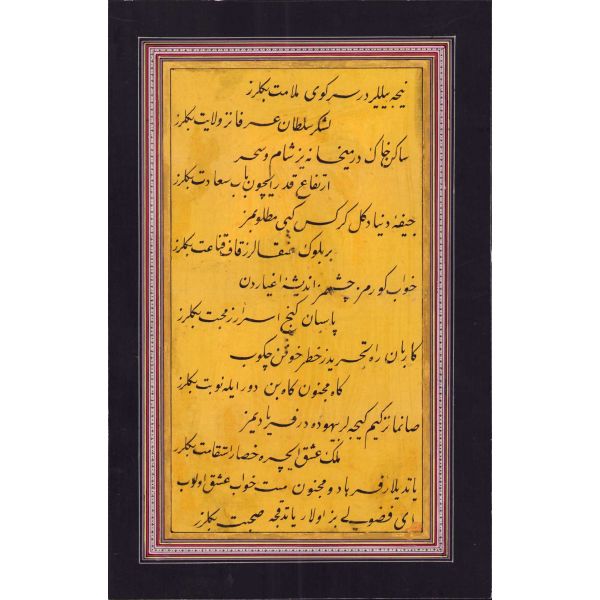 نیجه ییللر در سر کوی ملامت بکلرز
لشکر سلطان عرفانز ولایت بکلرز
ساکن خاک در میخانه یز شام و سحر
ارتفاع قدر ایچون باب سعادت بکلرز
جیفهٔ دنیا دکل کرکس کبی مطلوبمز
بر بلوک عنقالرز قاف قناعت بکلرز
خواب کورمز چشممز اندیشهٔ اغیاردن
پاسبان کنج اسرارز محبت بکلرز
کاربان راه تجریدز خطر خوفن چکوب
کاه مجنون کاه بن دور ایله نوبت بکلرز
صانمانز کیم کیجه لر بیهوده در فریادیمز
ملک عشق ایچره حصار استقامت بکلرز
یاتدیلر فرهاد و مجنون مست خواب عشق اولوب
ای فضولی بز اولار یاتدقجه صحبت بکلرز